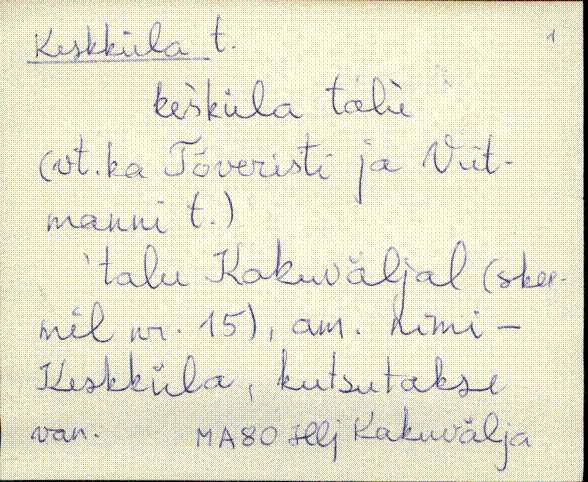 Keskküla t. 1
keskküla talu
(vt. ka Tõveristi ja Viit-
manni t.)
'talu Kakuväljal (skee-
mil nr. 15), am. nimi –
Keskküla, kutsutakse
van. MA80 Hlj Kakuvälja